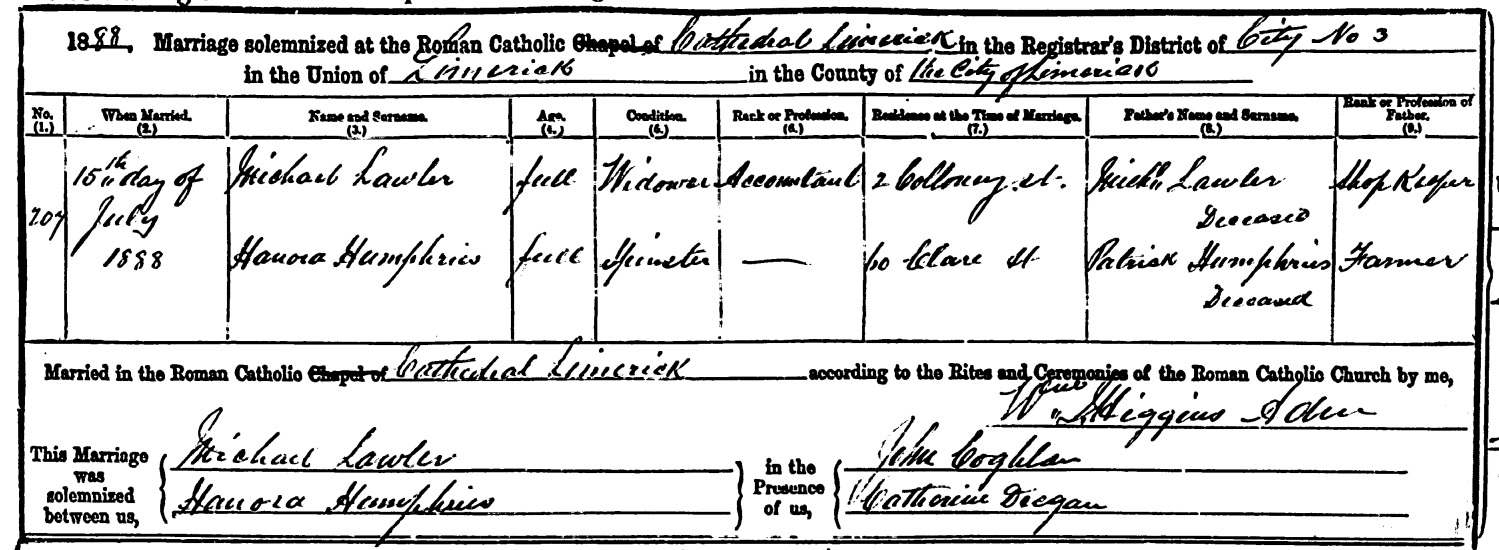 1888. Marriage solemnized at the Roman Catholic Chapel of Cathedral Limerick in the Registrar's District of City No 3
in the Union of Limerick in the County of the City of Limerick
No. When Married. Name and Surname. Age. Condition. Rank or Profession. Residence at the Time of Marriage. Father's Name and Surname. Rank or Profession of Father.
(1.) (2.) (3.) (4.) (5.) (6.) (7.) (8.) (9.)
15th day of Michael Lawler full Widower Accountant 2 Colloney st. Mich'l Lawler Shop Keeper
207 July Deceased
1888 Hanora Humphries full Spinster — 60 Clare St Patrick Humphries Farmer
Deceased
Married in the Roman Catholic Chapel of Cathedral Limerick according to the Rites and Ceremonies of the Roman Catholic Church by me,
Wm Higgins Adm
This Marriage was solemnized between us, Michael Lawler in the Presence of us, John Coghlan
Hanora Humphries Catherine Deegan